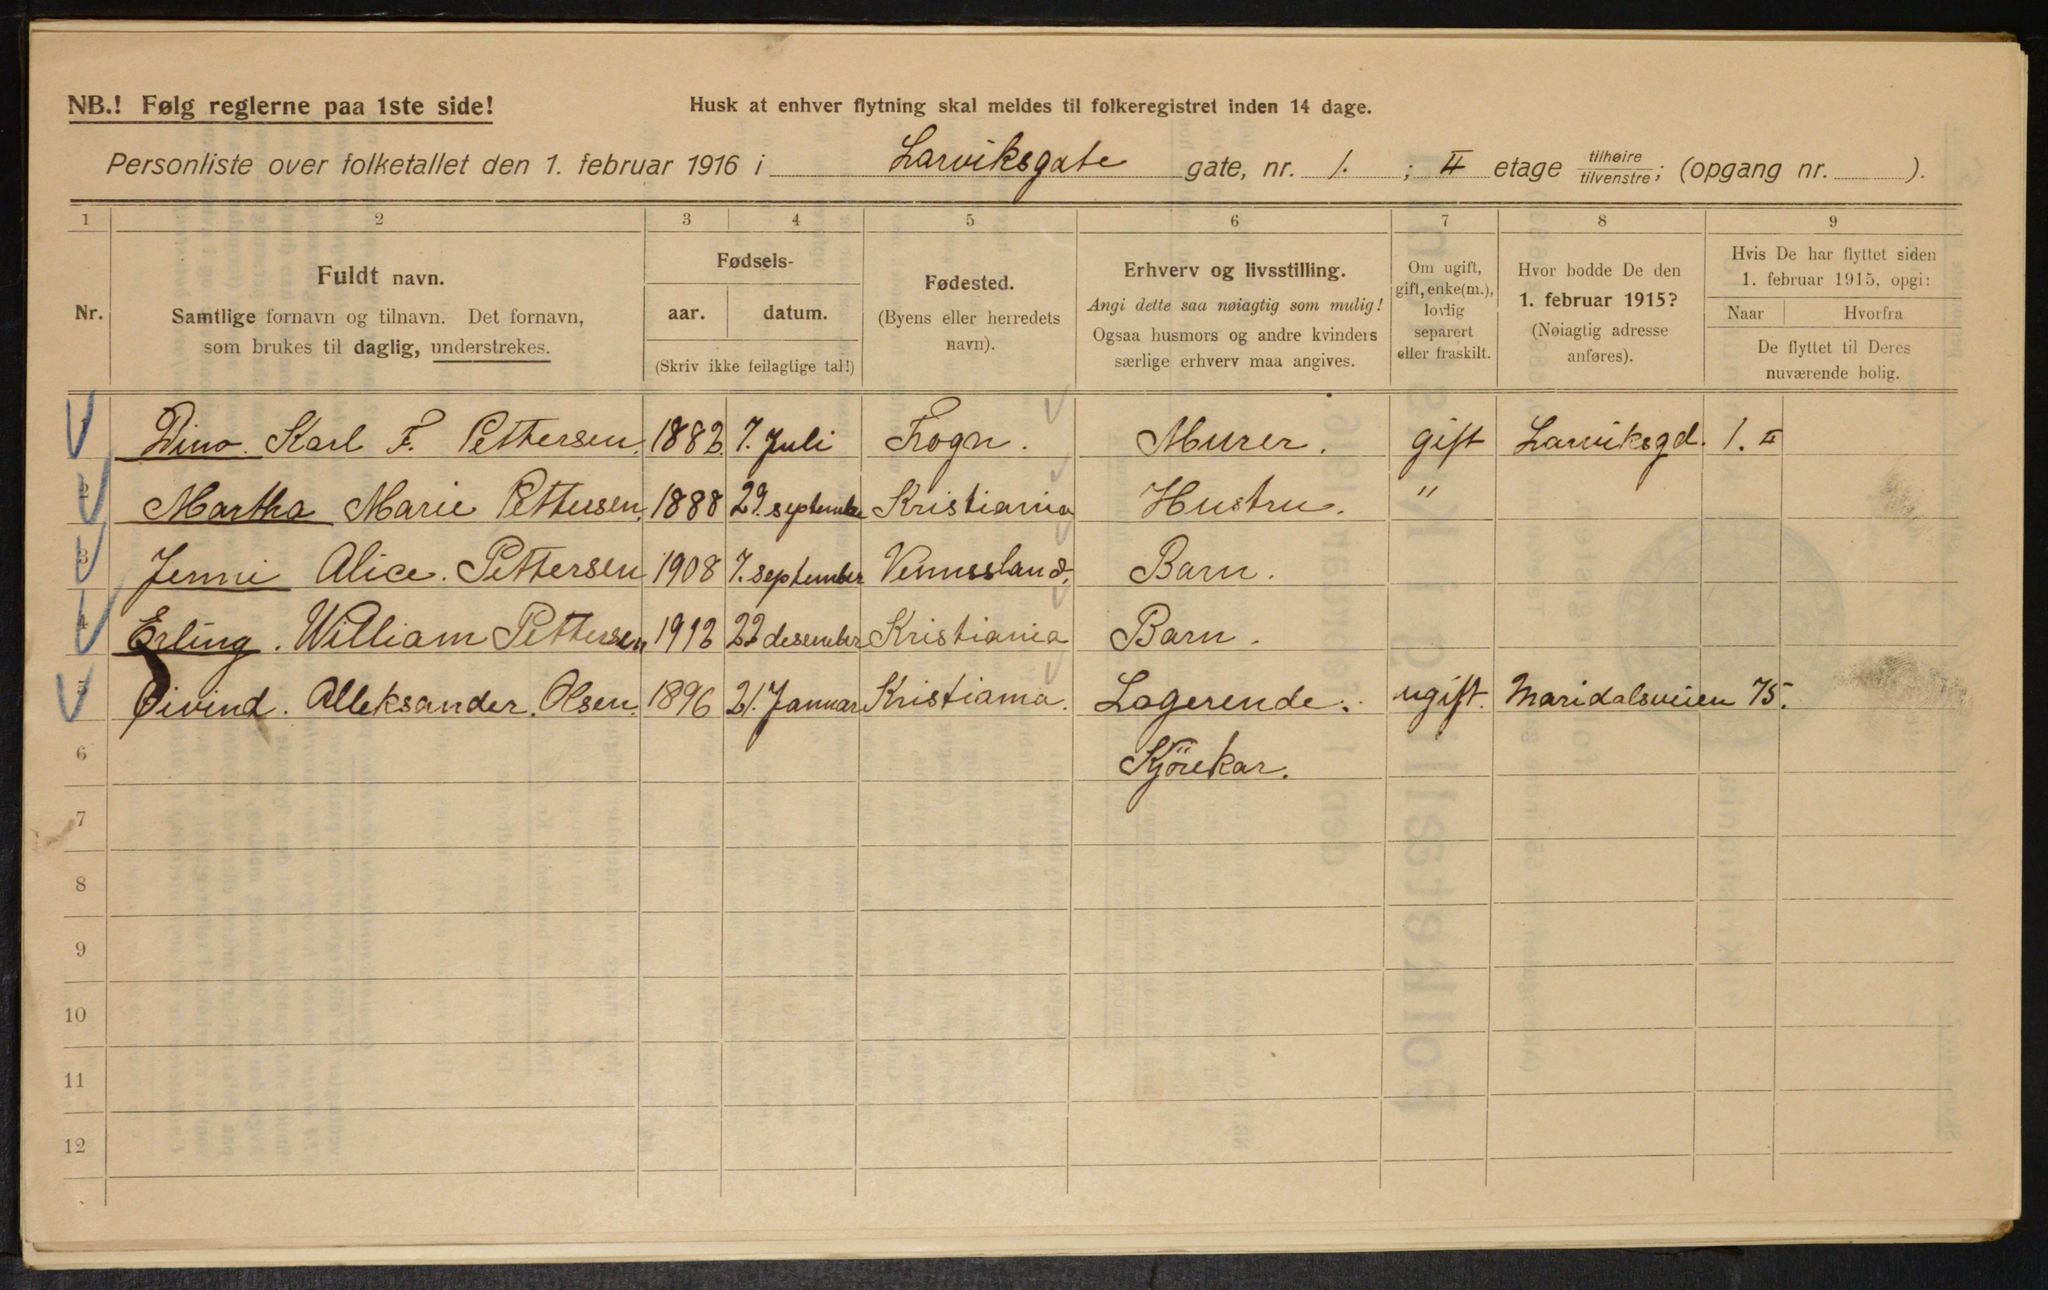 NB.! Følg reglerne paa 1ste side!
Husk at enhver flytning skal meldes til folkeregistret inden 14 dage.
Personliste over folketallet den 1. februar 1916 i Larviksgate gate, nr. 1. ; II etage tilhøire/tilvenstre; (opgang nr. ).
1 2 3 4 5 6 7 8 9
Nr.
Fuldt navn.
Samtlige fornavn og tilnavn. Det fornavn,
som brukes til daglig, understrekes.
Fødsels-
aar. datum.
(Skriv ikke feilagtige tal!)
Fødested.
(Byens eller herredets
navn).
Erhverv og livsstilling.
Angi dette saa nøiagtig som mulig!
Ogsaa husmors og andre kvinders
særlige erhverv maa angives.
Om ugift,
gift, enke(m.),
lovlig
separert
eller fraskilt.
Hvor bodde De den
1. februar 1915?
(Nøiagtig adresse
anføres).
Hvis De har flyttet siden
1. februar 1915, opgi:
Naar Hvorfra
De flyttet til Deres
nuværende bolig.
Karl F. Pettersen. 1882. 7. Juli Frogn. Murer. gift Larviksgd. 1. II
2 Martha Marie Pettersen. 1888 29. september Kristiania Hustru. "
3 Jenni Alice. Pettersen 1908 7. september Barn.
4 Erling. William Pettersen 1912 22 desember Kristiania Barn.
5 Øivind. Alleksander. Olsen. 1896 21. Januar Kristiania. Lagerende. ugift. Maridalsveien 75.
6 Kjörekar.
7
8
9
10
11
12